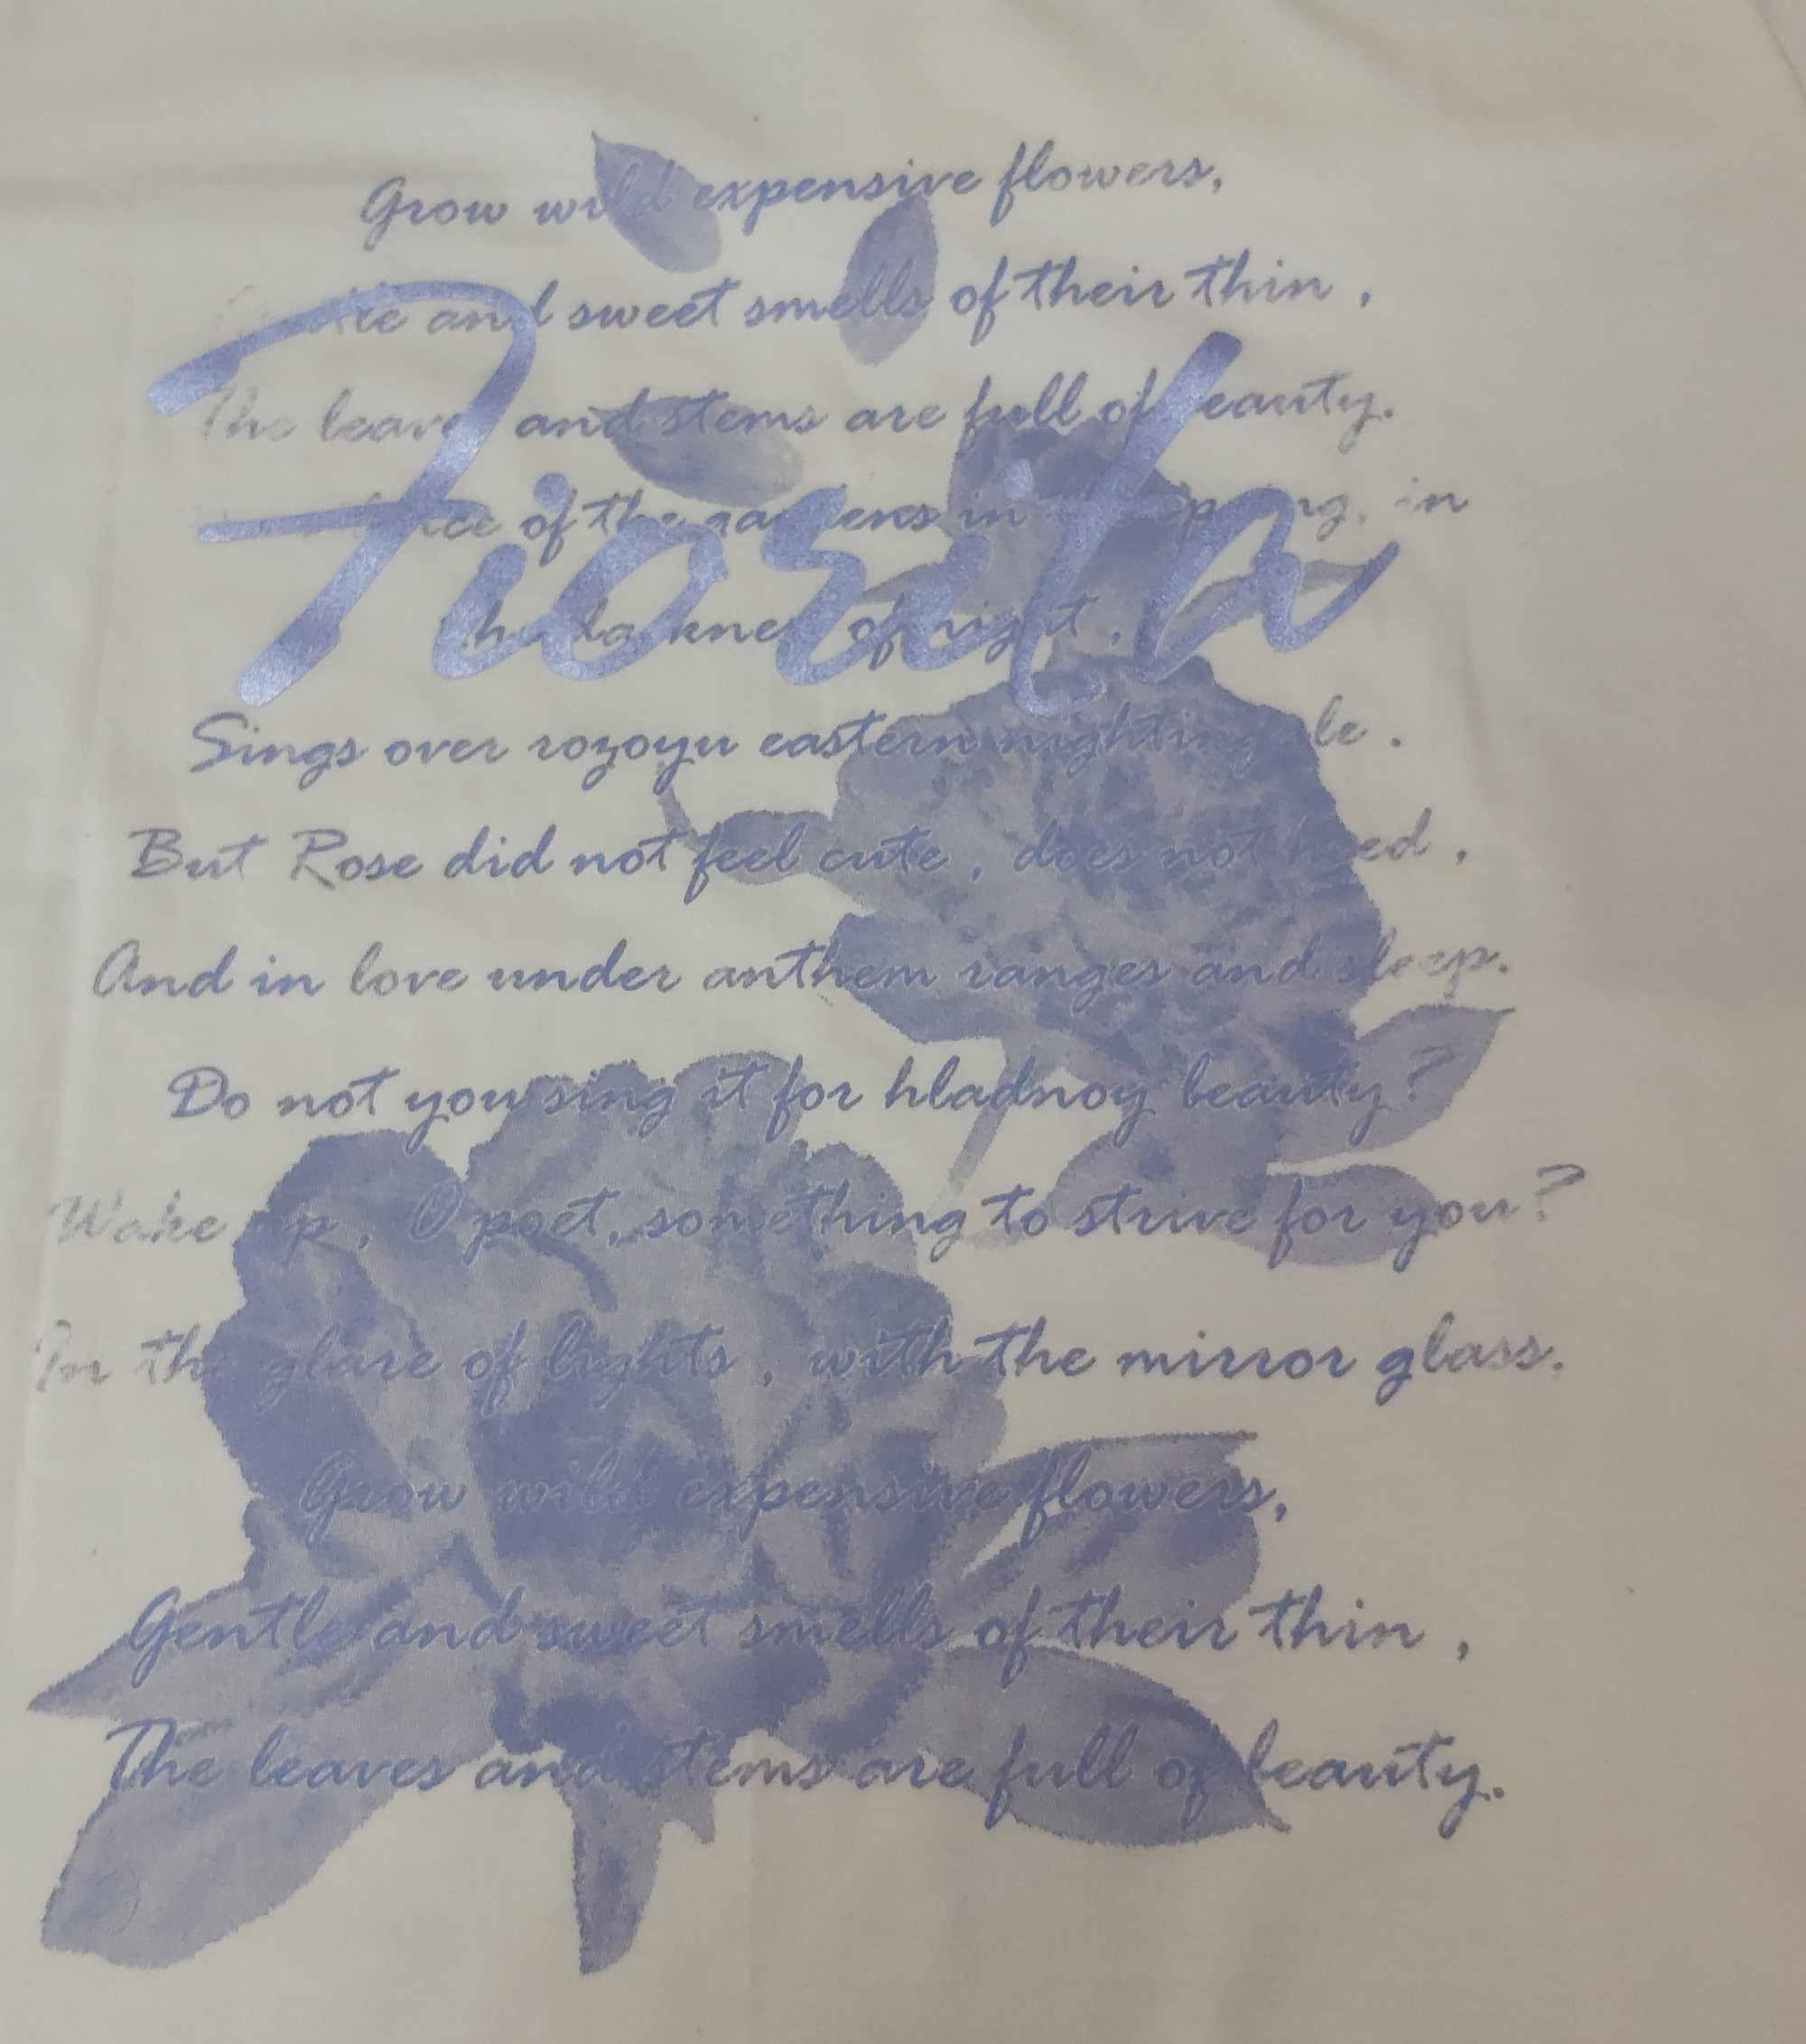 Grow wild expensive flowers,
and sweet smells of their thin ,
The leaves and stems are full of beauty.
Fiorita
of the gardens in in
the darkness of night ,
Sings over rozoyu eastern nightingale .
But Rose did not feel cute , does not heed ,
And in love under anthem ranges and sleep.
Do not you sing it for hladnoy beauty?
Wake up , O poet, something to strive for you?
For the glare of lights , with the mirror glass.
Grow wild expensive flowers,
Gentle and sweet smells of their thin ,
The leaves and stems are full of beauty.